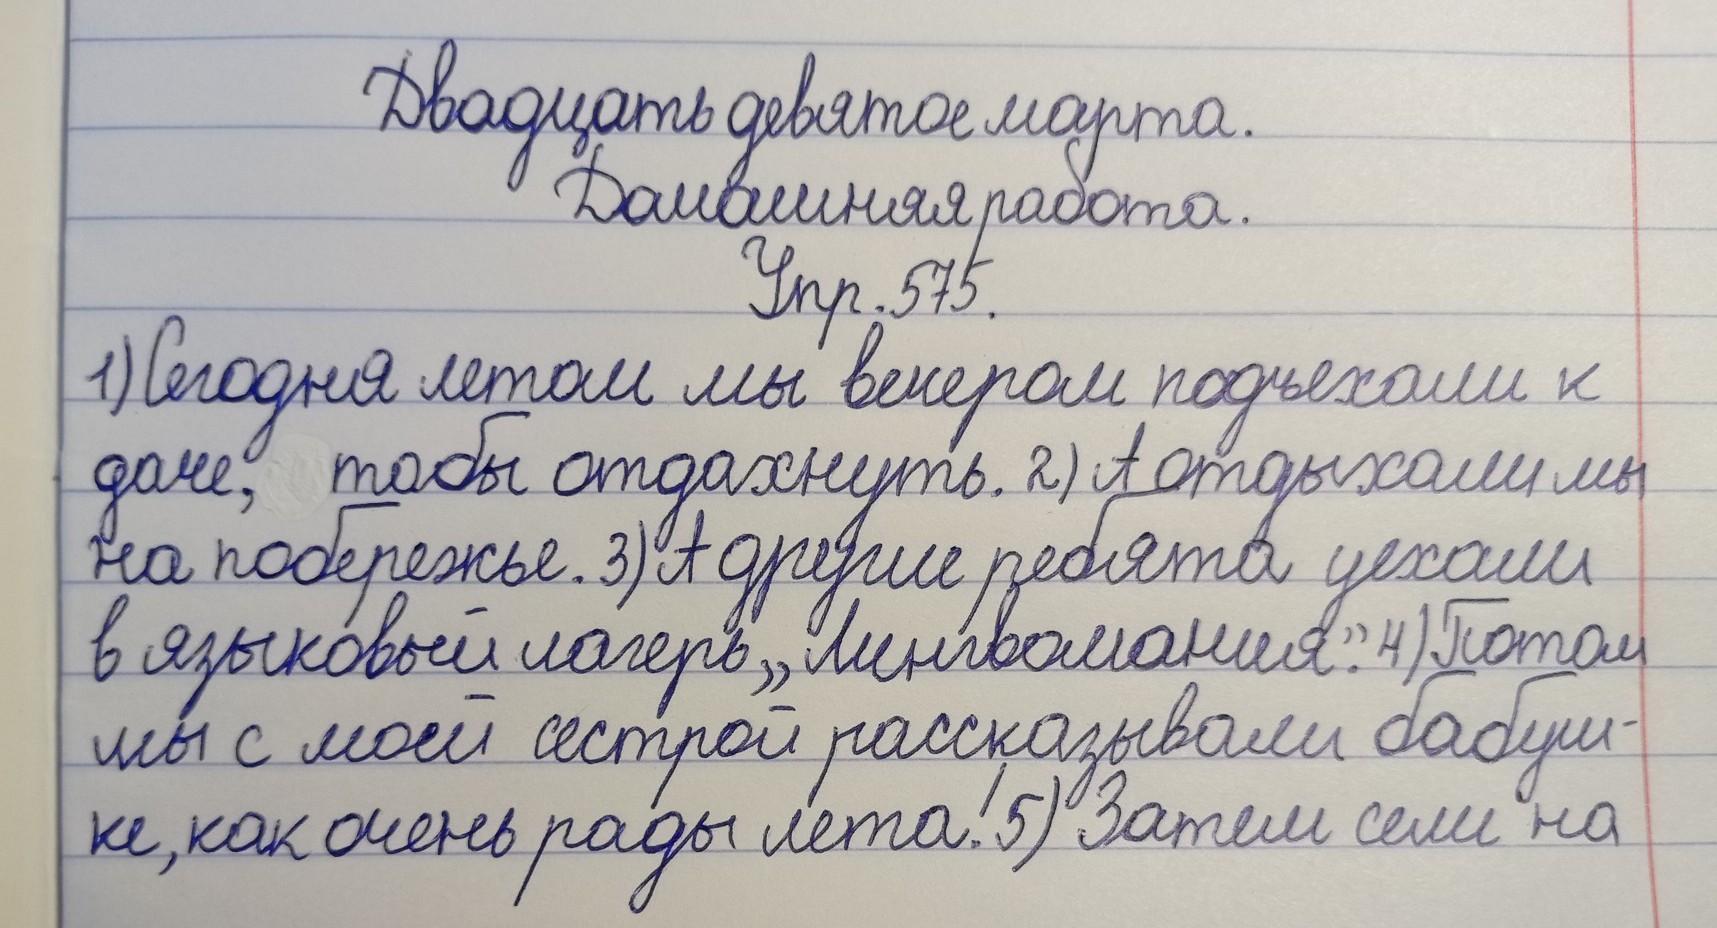 Двадцать девятое марта.
Домашняя работа.
Упр. 575.
1) Сегодня летом мы вечером подъехали к
даче, тобы отдахнуть. 2) А отдыхали мы
на побережье. 3) А другие ребята уехали
в языковый лагерь „Лингвомания”. 4) Потом
мы с моей сестрой рассказывали бабуш-
ке, как очень рады лета! 5) Затем сели на